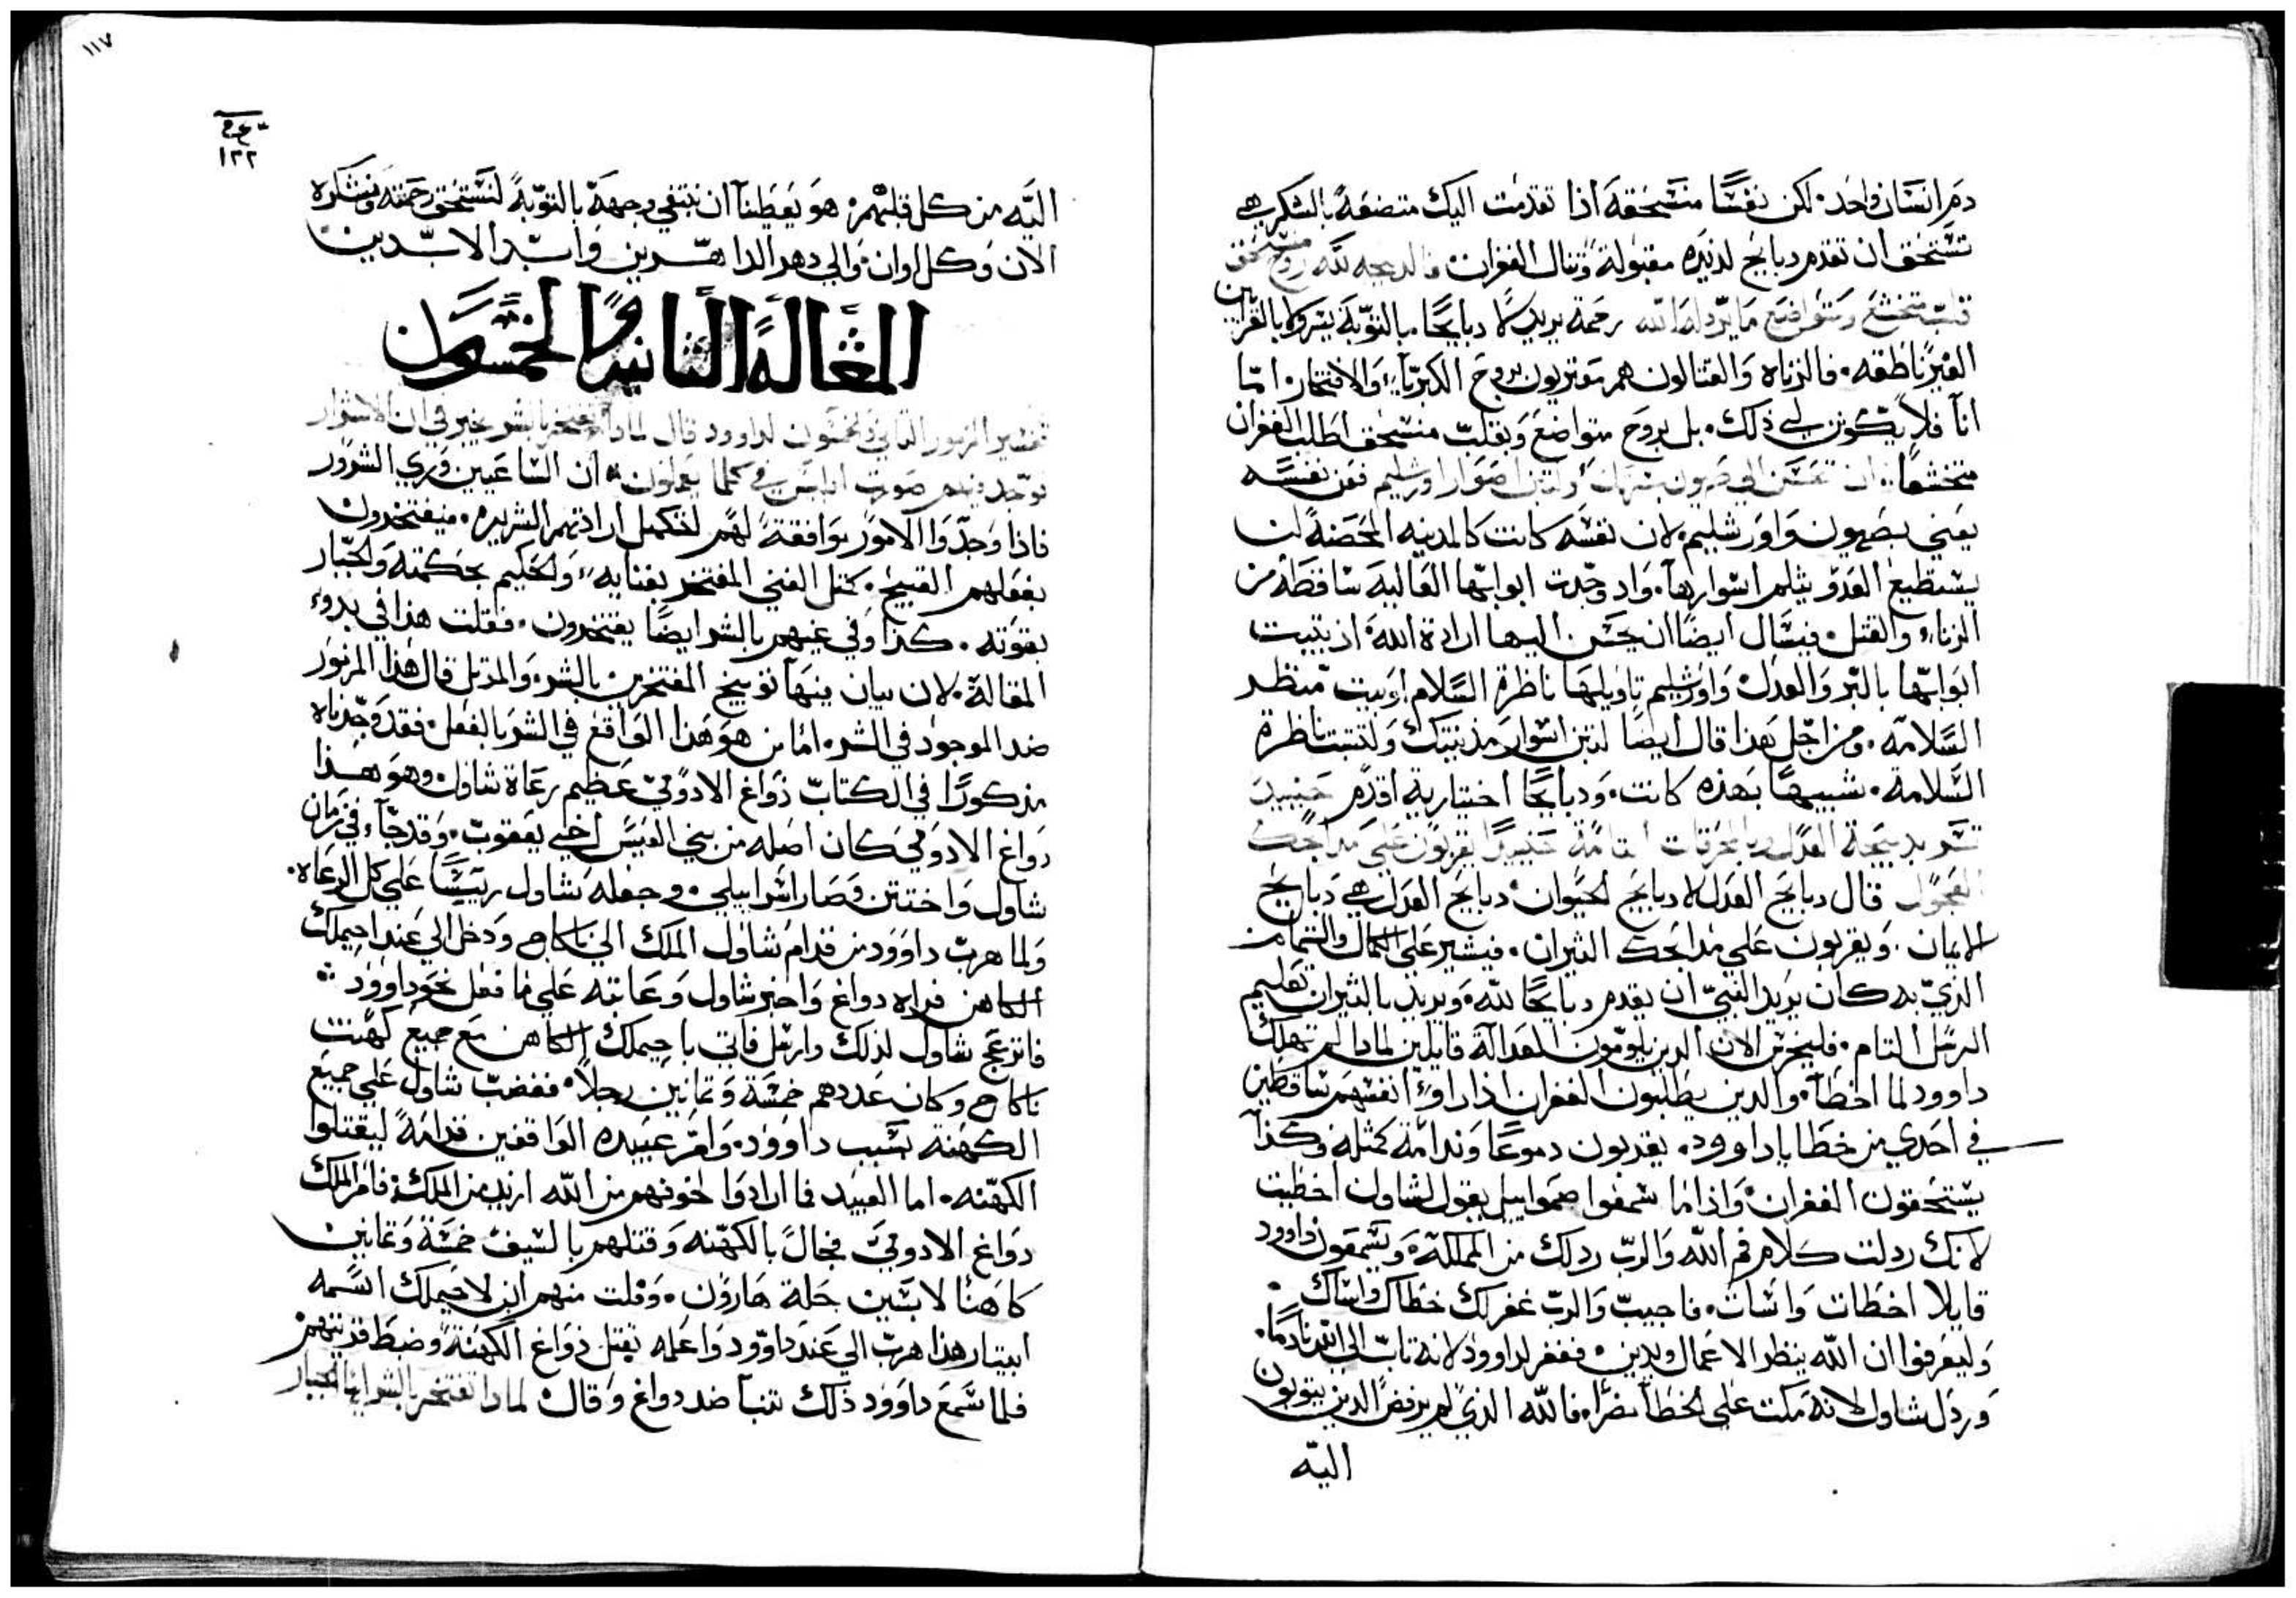 دم انسان واحد. لكن نفسًا منسحقة اذا تقدمت اليك متضعة بالشكر هي
تستحق ان تقدم دبايح لديده مقبولة وتنال الغفران. فالدبيحه لله روح منسحق
قلب متخشع ومتواضع ما يردله الله رحمة يريد لا دبايحًا. بالتوبة يسر ولا بالقرابين
الغير ناطقه. فالزناه والقتالون هم مقتربون بروح الكبرياء والافتخار. اما
انا فلا يكون لي ذلك. بل بروح متواضع وبقلب منسحق اطلب الغفران
متخشعًا. ان تحسن الي صهيون بمسرتك ولتبنا اصوار اورشليم فعن نفسه
يعني بصهيون واورشليم. لان نفسه كانت كالمدينه المحصنة لن
يستطيع العدو يثلم اسوارها. واد وجدت ابوابها العالية ساقطة من
الزناء والقتل. فيسال ايضًا ان يحسن اليها ارادة الله. اذ يتبيت
ابوابها بالبر والعدل واورشليم تاويلها ناظرة السلام او بيت منظر
السلامه. ومن اجل هذا قال ايضًا لتبن اسوار مدينتك ولتبنت ناظرة
السلامة. شبيهًا بهذه كانت. ودبايحًا اختيارية اقدم حينيد
تسر بدبيحة العدل وبالمحرقات التامة حينيد يقربون علي مدابحك
العجول قال دبايح العدل لا دبايح الحيوان. دبايح العدل هي دبايح
الايمان. ويقربون علي مدابحك الثيران. فيشير علي الكمال والتمام من
الذي به كان يريد النبي ان يقدم دبايحًا لله. ويريد بالثيران تعليم
الرسل التام. فليخرس الان الدين يلومون العدالة قايلين لمادا لم تهلك
داوود لما اخطا. والدين يطلبون الغفران اذا راوا انفسهم ساقطين
في احدي من خطايا داوود. يقدمون دموعًا وندامة كمثله وكذا
يستحقون الغفران. واذا ما سمعوا صموايل يقول لشاول اخطيت
لانك ردلت كلام فم الله والرب ردلك من المملكة. ويسمعون داوود
قايلا اخطات واسات. فاجيب والرب غفر لك خطاك واساك.
وليعرفوا ان الله ينظر الاعمال ويدين. فغفر لداوود لانه تاب الي الله نادمًا.
وردل شاول لانه مكت علي الخطا مصرًا. فالله الذي لم يرفض الدين يتوبون
اليه
١١٧
١٢٢
اليه من كل قلبهم. هو يعطينا ان نبتغي وجهه بالتوبة لنستحق رحمته ونشكره
الان وكل اوان. والي دهر الداهرين وابد الابدين
المقالة الثانية والخمسون
تفسير المزمور التاني والخمسون لداوود قال لمادا يفتخر بالشر يخبر في ان الاشرار
توجد فيهم صورت ابليس في كلما يعملون. ان الساعيين وري الشرور
فاذا وجدوا الامور موافقة لهم لتكميل ارادتهم الشريره. فيفتخرون
بفعلهم القبيح. كمثل الغني المفتخر بغنايه. والحكيم بحكمته والجبار
بقوته. كذا وفي غيهم بالشر ايضًا يفتخرون. فقلت هذا في بدوء
المقالة. لان بيان منها توبيخ المفتخرين بالشر. والمرتل قال هذا المزمور
ضد الموجود في الشر. اما من هو هذا الواقع في الشر بالفعل. فقد وجدناه
مذكورًا في الكتاب دواغ الادومي عظيم رعاة شاول. وهو هذا
دواغ الادومي كان اصله من بني العيس اخي يعقوب. وقد جاء في زمان
شاول واختتن وصار اسراييلي. وجعله شاول رييسًا علي كل الرعاه.
ولما هرب داوود من قدام شاول الملك الي ناكاح ودخل الي عند احيملك
الكاهن فراه دواغ واخبر شاول وعاتبه علي ما فعل نحو داوود
فانزعج شاول لذلك وارسل فاتي باحيملك الكاهن مع جميع كهنت
ناكاح وكان عددهم خمسة وتمانين رجلاً. فغضب شاول علي جميع
الكهنة بسبب داوود. وامر عبيده الواقفين قدامه ليقتلوا
الكهنه. اما العبيد فما ارادوا لخوفهم من الله ازيد من الملك. فامر الملك
دواغ الادومي فجال بالكهنه وقتلهم بالسيف خمسة وتمانين
كاهنًا لابسين حلة هارون. وفلت منهم ابن لاحيملك اسمه
ابيتار هذا هرب الي عند داوود واعلمه بقتل دواغ الكهنة. وضبط قريتهم
فلما سمع داوود ذلك تنبا ضد دواغ وقال. لمادا تفتخر بالشر ايها الجبار